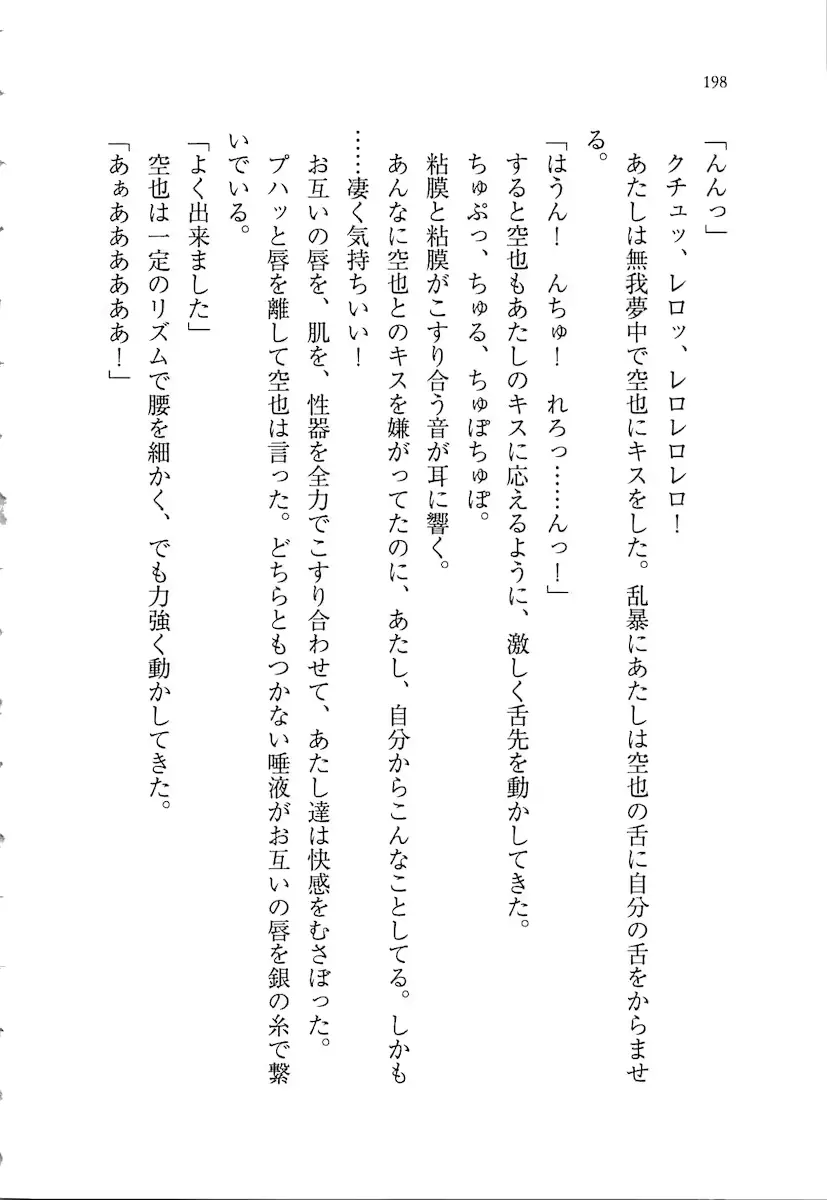 198
「んんっ」
クチュッ、レロッ、レロレロレロ！
あたしは無我夢中で空也にキスをした。乱暴にあたしは空也の舌に自分の舌をからませ
る。
「はうん！　んちゅ！　れろっ……んっ！」
すると空也もあたしのキスに応えるように、激しく舌先を動かしてきた。
ちゅぷっ、ちゅる、ちゅぽちゅぽ。
粘膜と粘膜がこすり合う音が耳に響く。
あんなに空也とのキスを嫌がってたのに、あたし、自分からこんなことしてる。しかも
……凄く気持ちいい！
お互いの唇を、肌を、性器を全力でこすり合わせて、あたし達は快感をむさぼった。
プハッと唇を離して空也は言った。どちらともつかない唾液がお互いの唇を銀の糸で繋
いでいる。
「よく出来ました」
空也は一定のリズムで腰を細かく、でも力強く動かしてきた。
「あぁああああああ！」